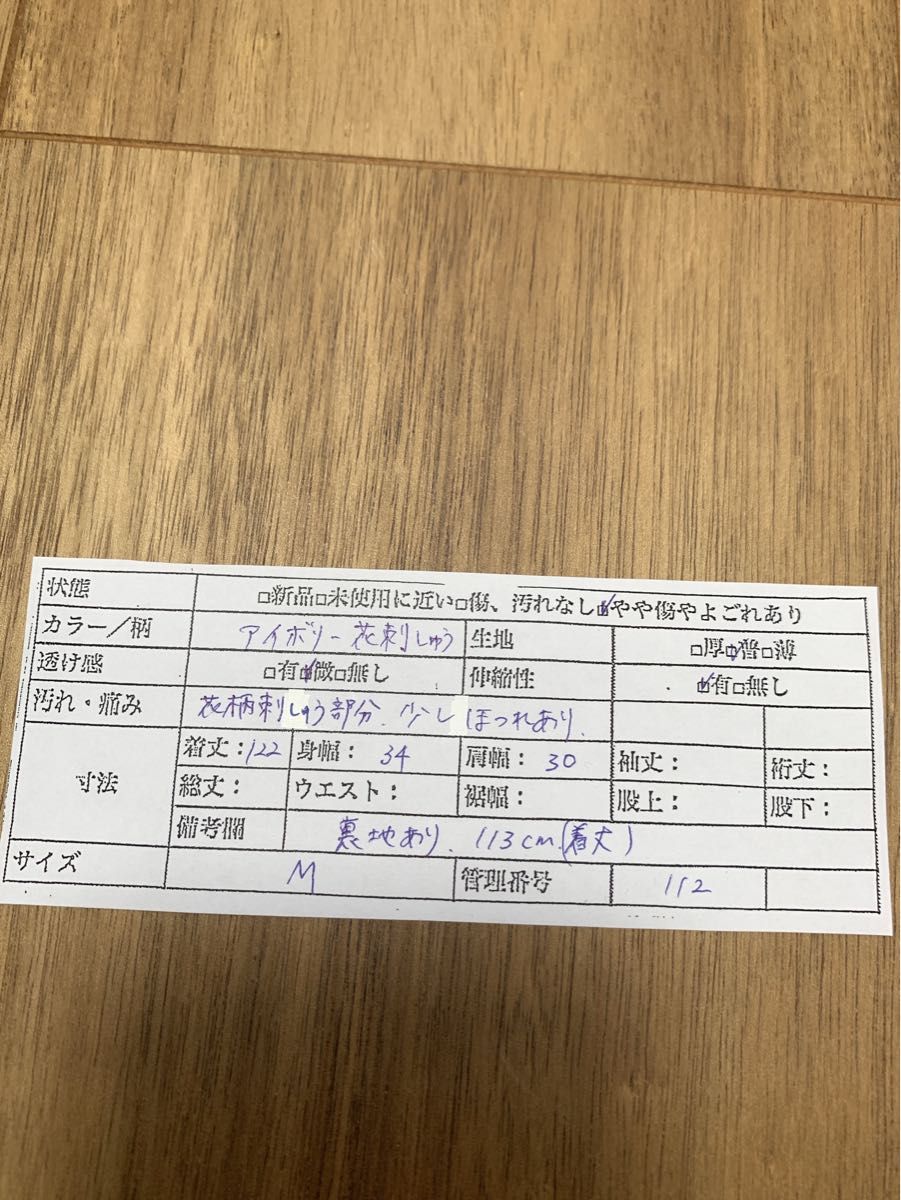 状態 □新品□未使用に近い□傷、汚れなし☑やや傷やよごれあり
カラー／柄 アイボリー 花刺しゅう 生地 □厚☑普□薄
透け感 □有☑微□無し 伸縮性 ☑有□無し
汚れ・痛み 花柄刺しゅう部分、少しほつれあり.
寸法 着丈：122 身幅： 34 肩幅： 30 袖丈： 裄丈：
総丈： ウエスト： 裾幅： 股上： 股下：
備考欄 裏地あり. 113cm.(着丈)
サイズ M 管理番号 112